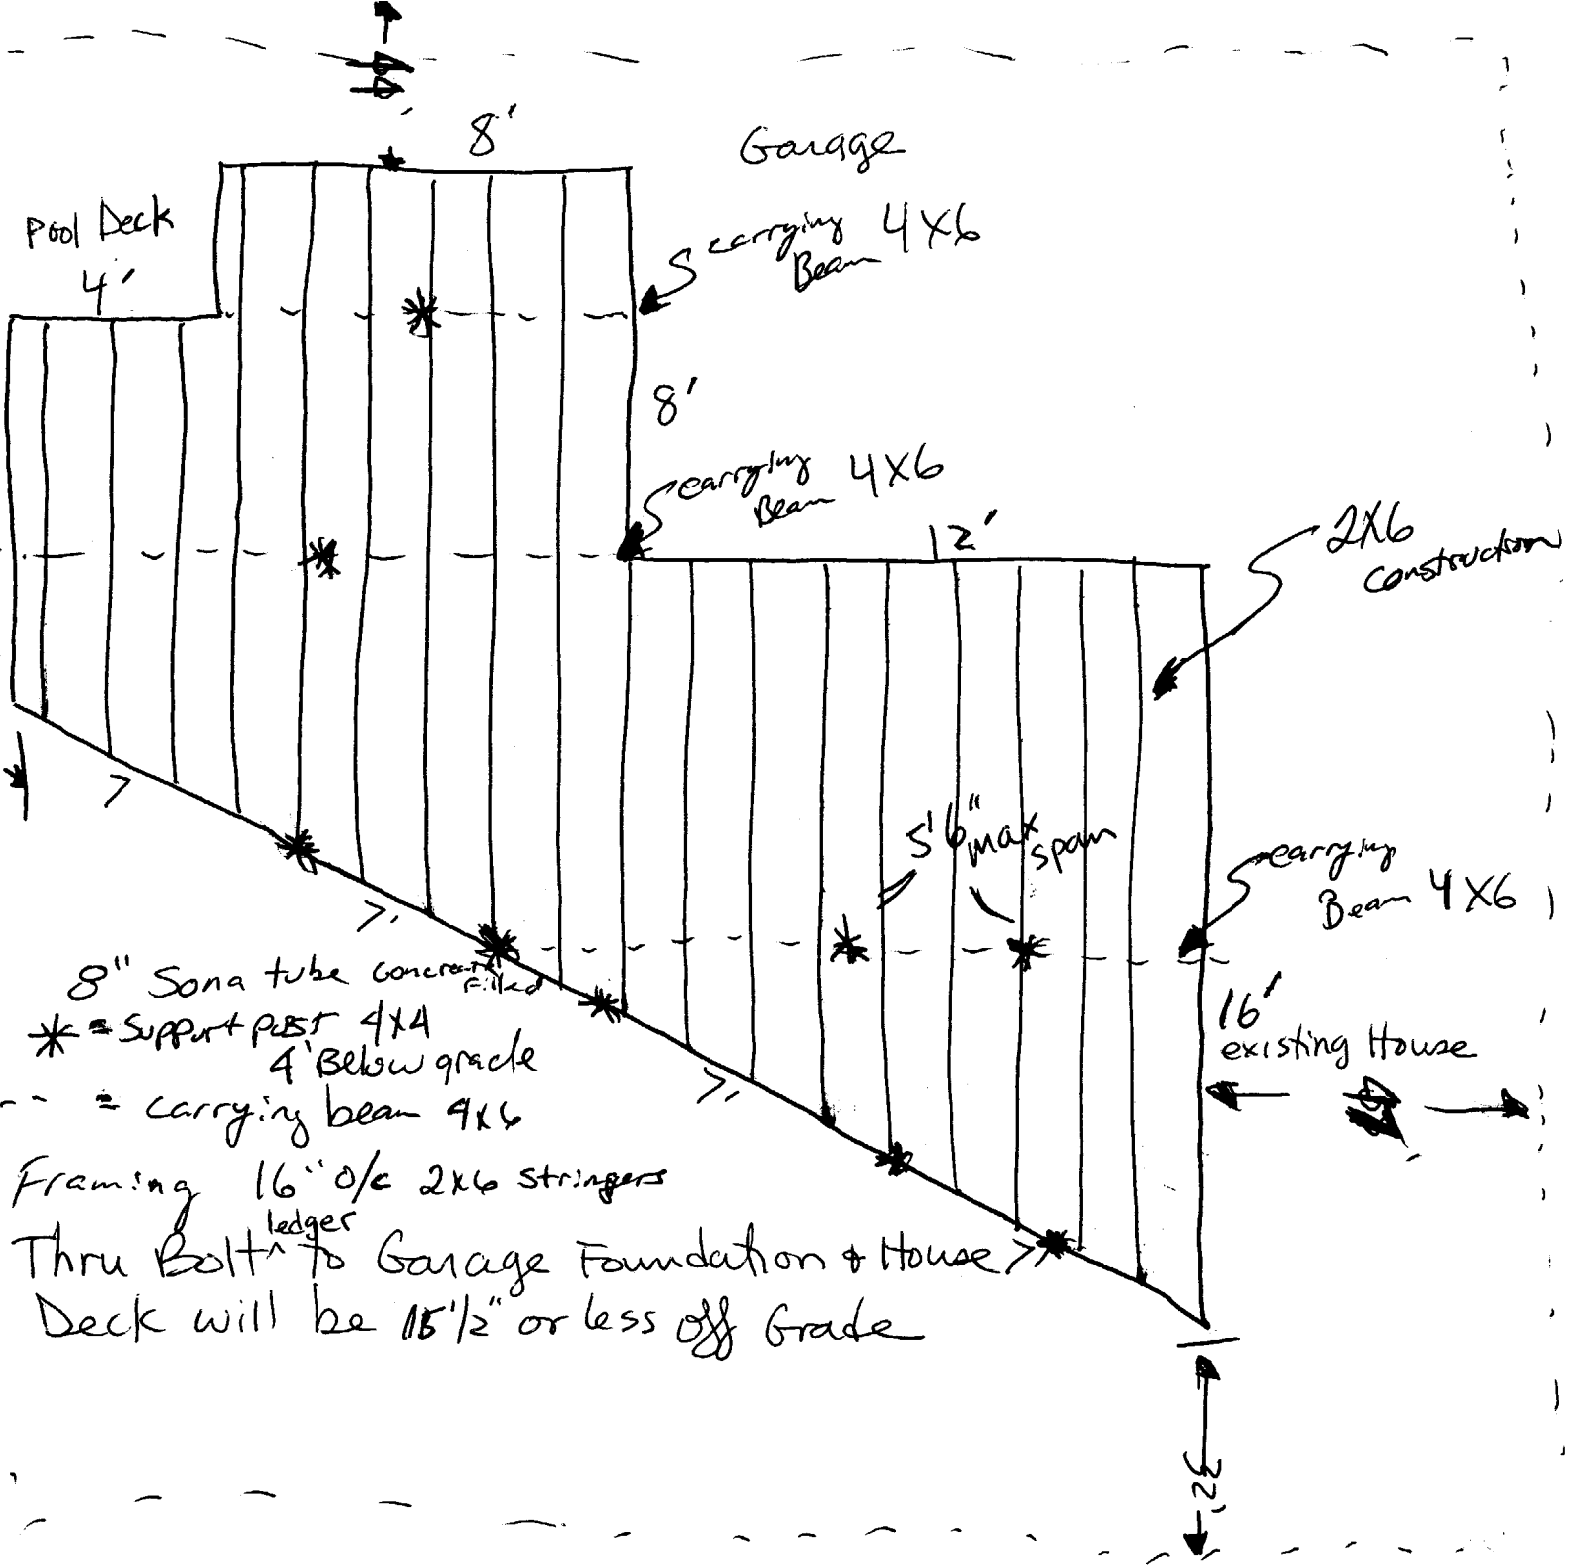 8'
Garage
Pool Deck
4'
carrying 4X6
Beam
8'
carrying 4X6
Beam
12'
2X6
Construction
5'6" max
span
carrying
Beam 4X6
16'
existing House
8" Sona tube concrete
Filled
* = Support post 4X4
4' Below grade
-- = carrying beam 4x6
Framing 16" o/c 2x6 stringers
ledger
Thru Bolt ^ to Garage Foundation & House
Deck will be 15 1/2" or less off Grade
32'